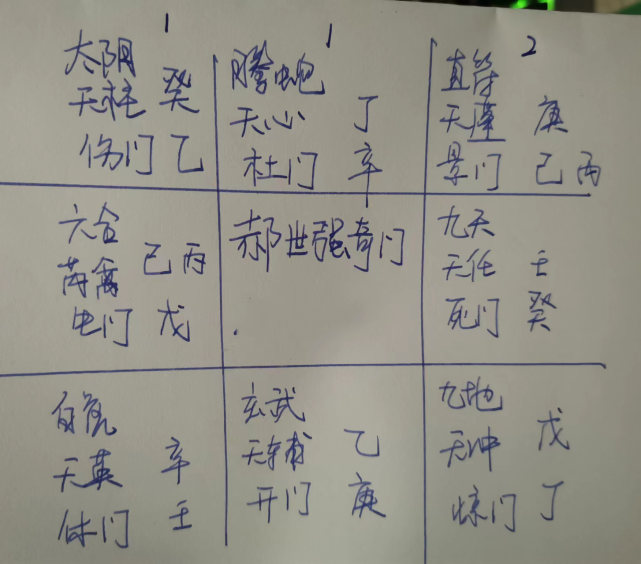 1
太阴
天柱 癸
伤门 乙
1
螣蛇
天心 丁
杜门 辛
2
直符
天蓬 庚
景门 己丙
六合
芮禽 己丙
生门 戊
郝世强奇门
九天
天任 壬
死门 癸
白虎
天英 辛
休门 壬
玄武
天辅 乙
开门 庚
九地
天冲 戊
惊门 丁